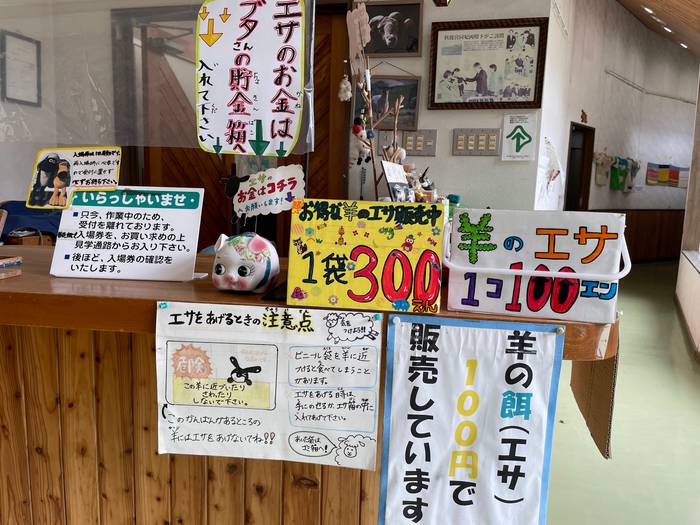 エサのお金は
ブタさんの貯金箱へ
入れて下さい
いらっしゃいませ
■只今、作業中のため、
受付を離れております。
入場券を、お買い求めの上
見学通路からお入り下さい。
■後ほど、入場券の確認を
いたします。
お金はコチラ
へお願いします
お得な羊のエサ販売中
1袋300えん
羊のエサ
1コ100エン
エサをあげるときの注意点
危険
この羊に近づいたり
さわったり
しないで下さい。
このかんばんがあるところの
羊にはエサをあげないでね!!
ビニール袋を羊に近
づけると食べてしまうこと
があります。
エサをあげる時は、
手にのせるか、エサ箱の中に
入れてあげて下さい。
羊の餌(エサ)
100円で
販売しています